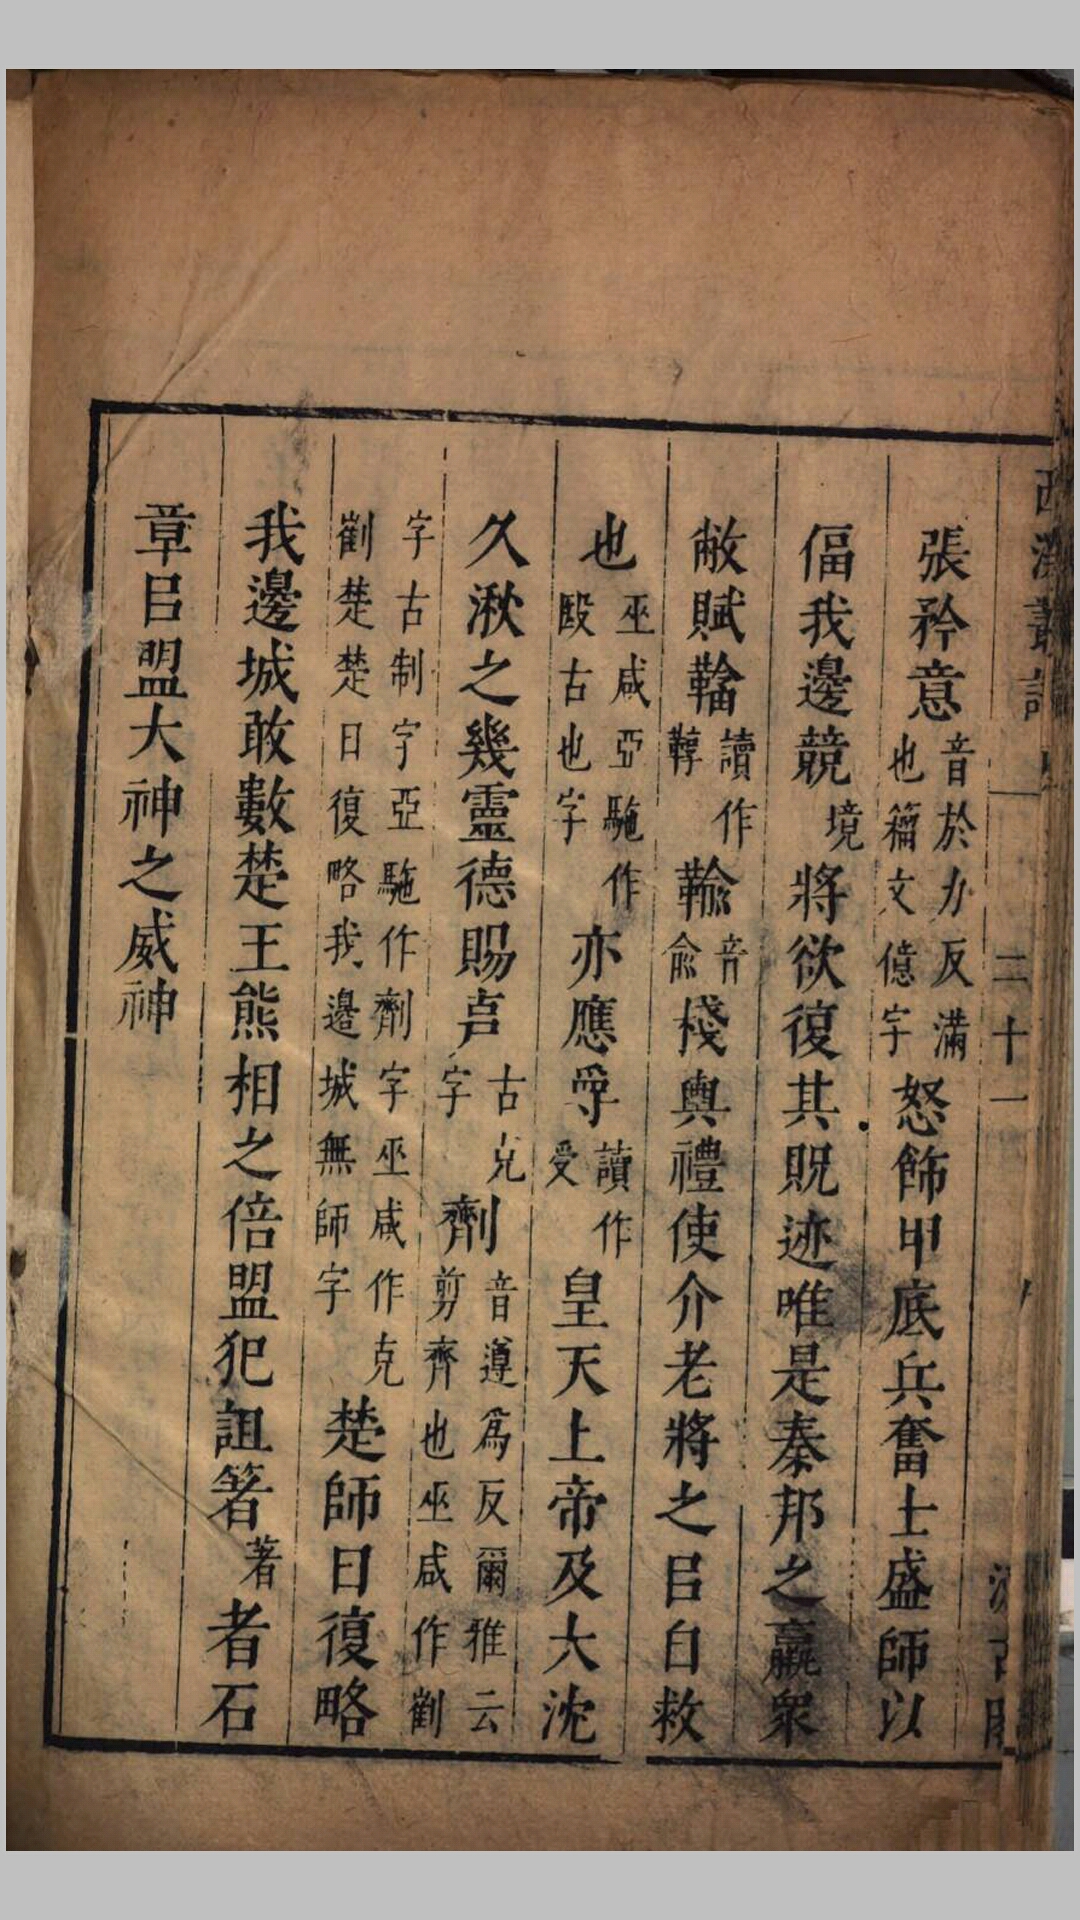 西溪叢語 二十一
張矜意音於力反滿也籀文億字怒飾甲底兵奮士盛師以
偪我邊競境將欲復其貺迹唯是秦邦之羸衆
敝賦鞈讀作鞟鞥音俞棧輿禮使介老將之㠯自救
也巫咸亞駞作殹古也字亦應受讀作受皇天上帝及大沈
久湫之幾靈德賜克古克字劑音遵爲反爾雅云剪齊也巫咸作㔉
字古制字亞駞作劑字巫咸作克㔉楚楚日復略我邊城無師字楚師日復略
我邊城敢數楚王熊相之倍盟犯詛箸著者石
章㠯盟大神之威神